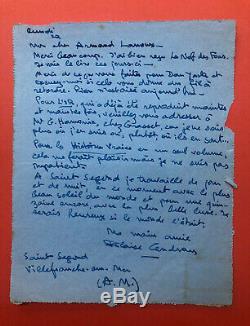 Lundi
Mon cher Armand Lanoux
Merci beaucoup. J'ai bien reçu La Nef des Fous.
Je vais le lire ces jours-ci
Merci de ce que vous faites pour Dan Yack et
excusez-moi si cela vous donne du fil à
retordre. Rien n'est aisé aujourd'hui
Pour L'Or, qui a déjà été reproduit maintes
et maintes fois, veuillez vous adresser à
chez Grasset, car je ne sais
plus où j'en suis ou, plutôt, où ils en sont.
Pour les Histoires Vraies en un seul volume,
cela me ferait plaisir mais je ne suis pas
impatient.
A Saint Segond je travaille de jour
et de nuit, en ce moment avec le plus
beau soleil du monde et, pour une quin-
zaine encore, avec la plus belle lune. Je
serais heureux si le monde l'était.
Ma main amie
Blaise Cendrars
Saint Segond
Villefranche-sur-Mer
(A.M.)